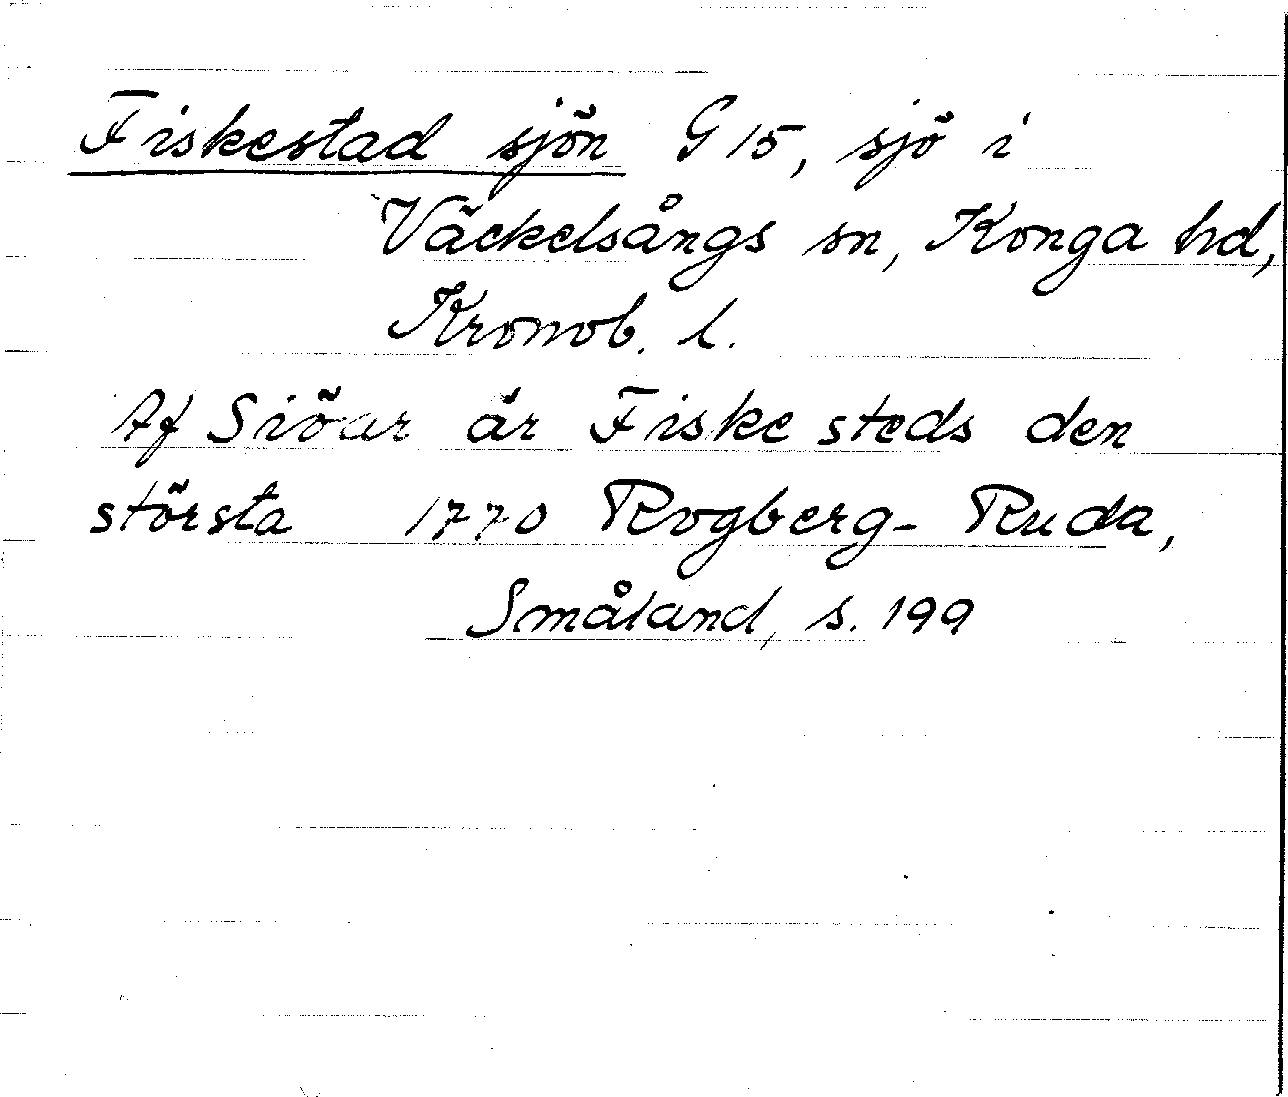 Fiskestad sjön G 15, sjö i
Väckelsångs sn, Konga hd,
Kronob. l.
Af Siöar är Fiske steds den
största 1770 Rogberg- Ruda,
Småland, s. 199